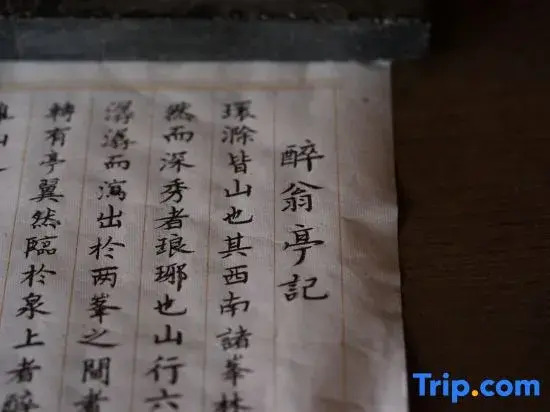 醉翁亭記
環滁皆山也其西南諸峯林
然而深秀者琅琊也山行六
潺潺而瀉出於两峯之間者
轉有亭翼然臨於泉上者醉
山
Trip.com